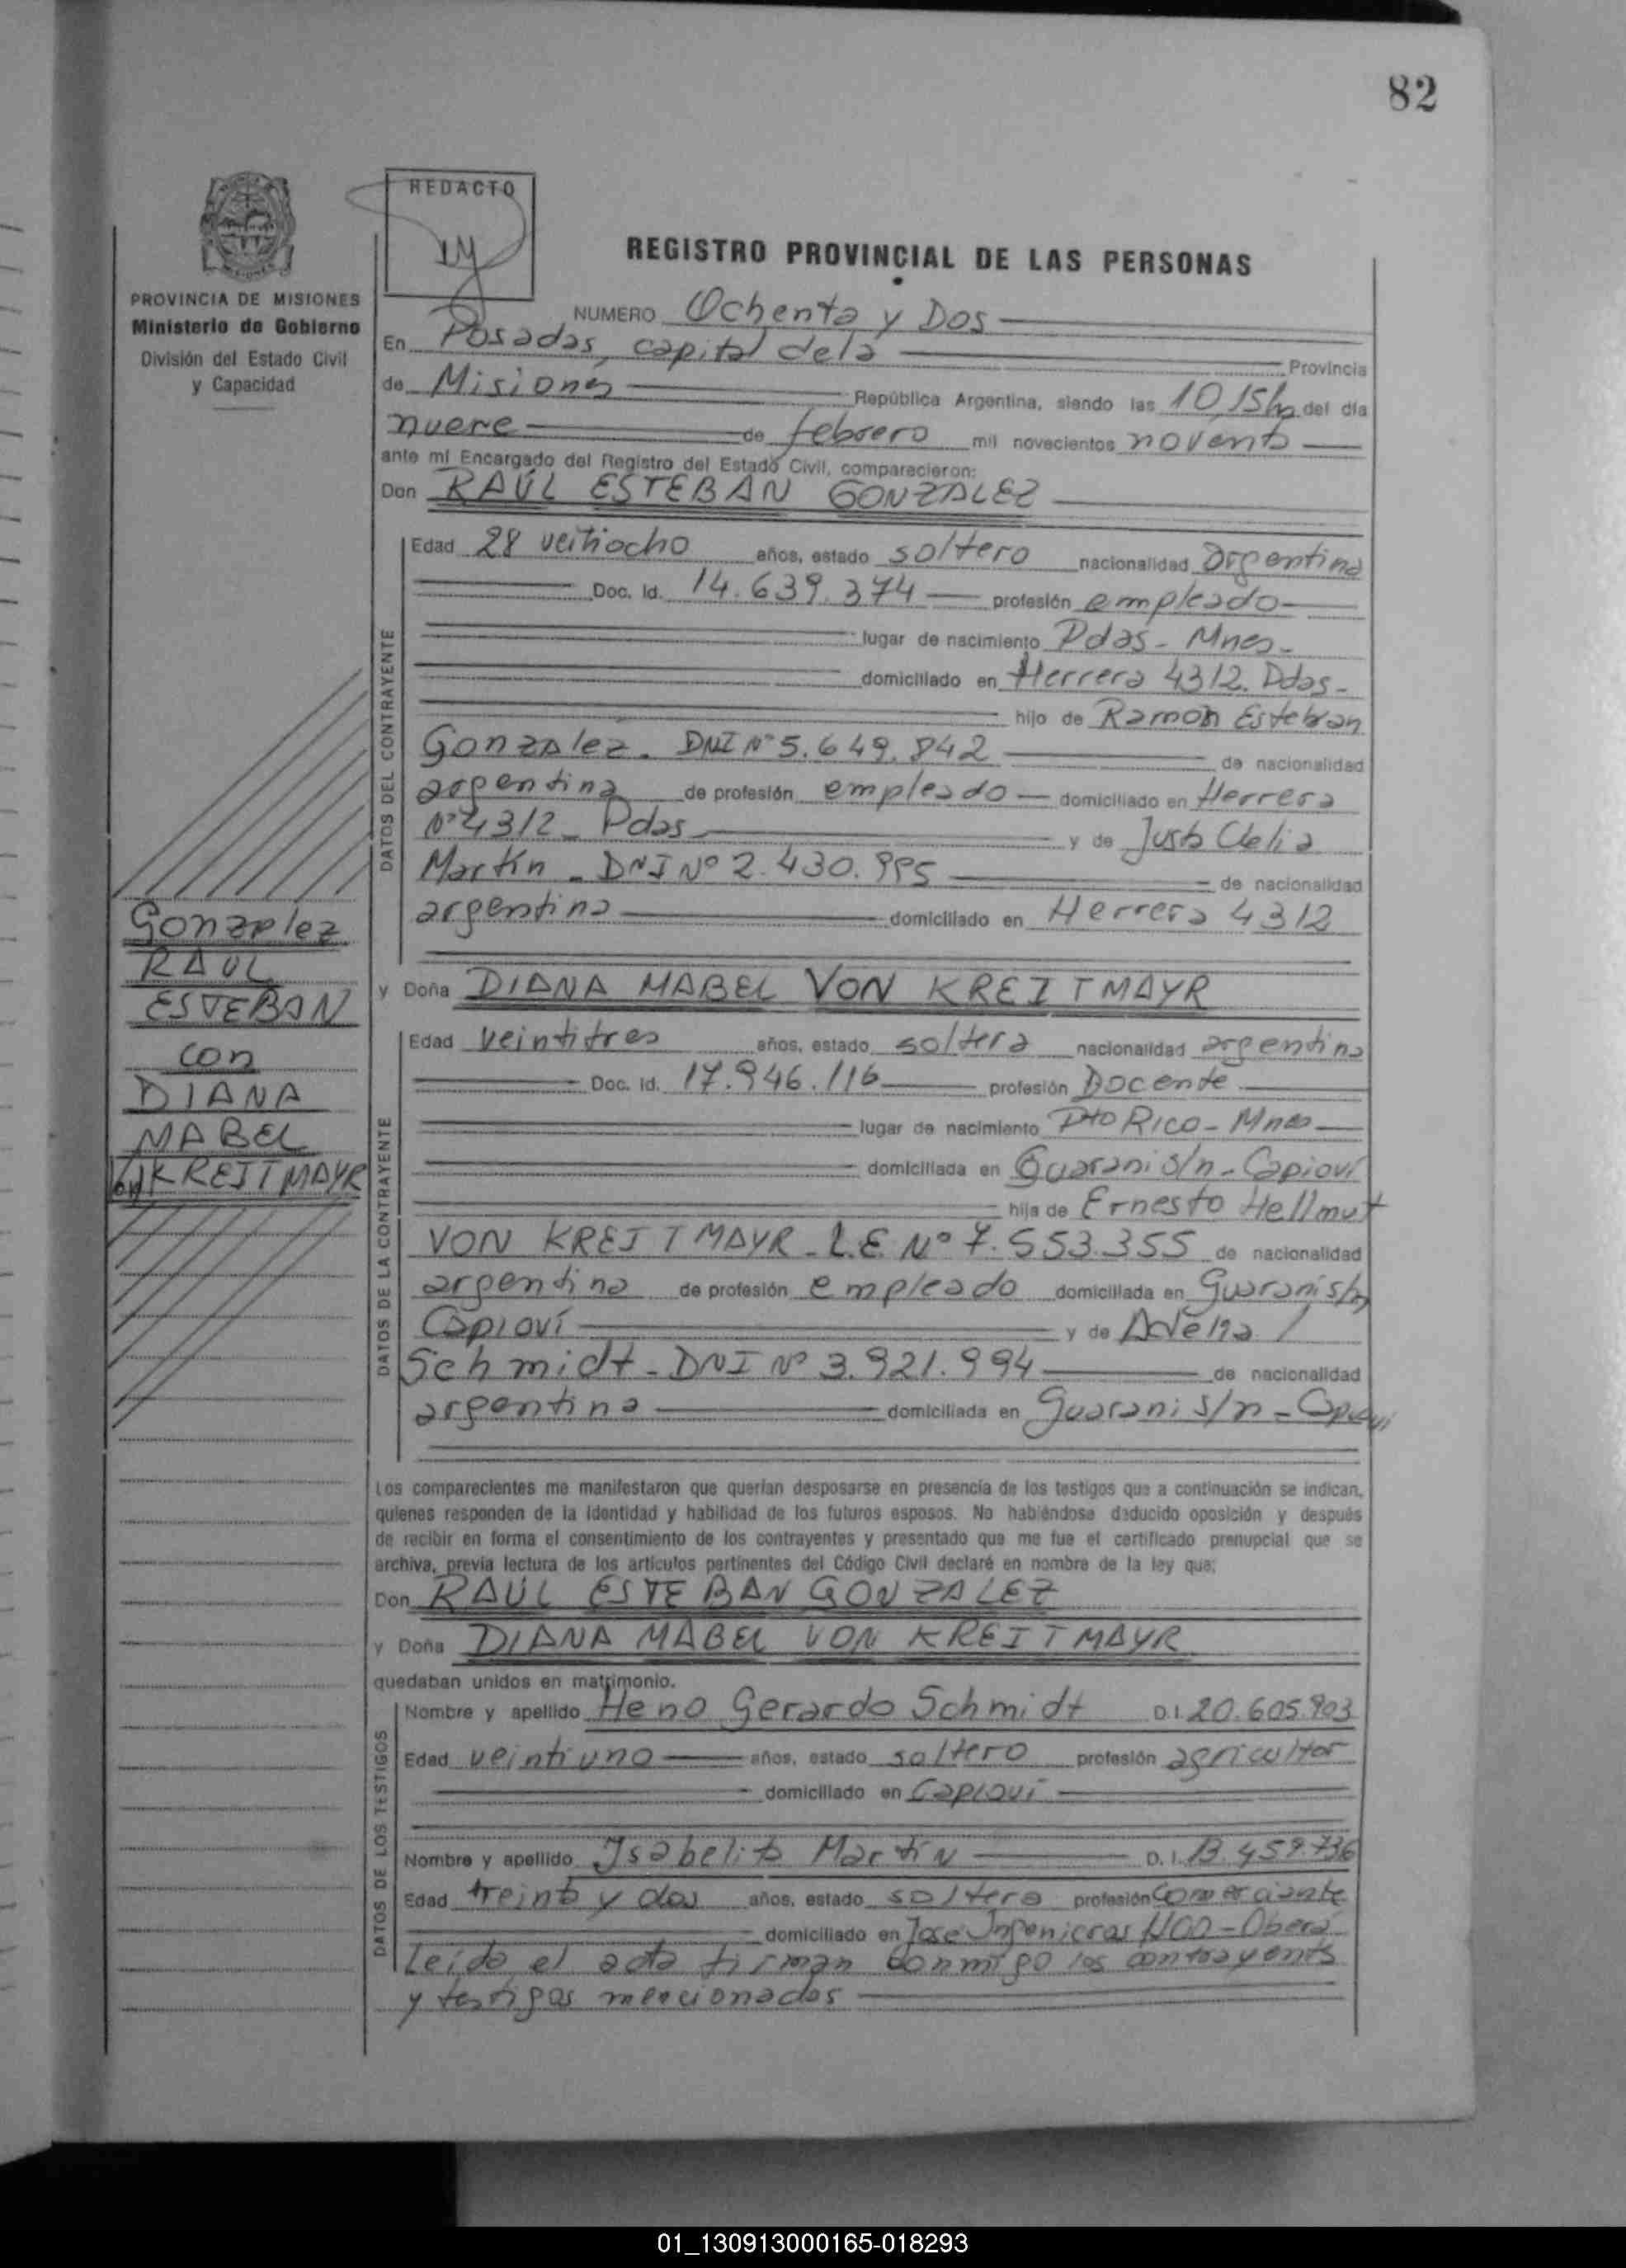 82
REDACTO
REGISTRO PROVINCIAL DE LAS PERSONAS
PROVINCIA DE MISIONES
Ministerio de Gobierno
División del Estado Civil
y Capacidad
NUMERO Ochenta y Dos
En Posadas, capital de la Provincia
de Misiones República Argentina, siendo las 10,15hs del día
nueve de febrero mil novecientos noventa
ante mí Encargado del Registro del Estado Civil, comparecieron:
Don RAÚL ESTEBAN GONZALEZ
DATOS DEL CONTRAYENTE
Edad 28 veitiocho años, estado soltero nacionalidad argentina
Doc. Id. 14.639.374 profesión empleado
lugar de nacimiento Pdas - Mnes -
domiciliado en Herrera 4312. Pdas -
hijo de Ramón Esteban
Gonzalez - DNI Nº 5.649.842 de nacionalidad
argentina de profesión empleado domiciliado en Herrera
Nº 4312 - Pdas y de Justa Clelia
Martín - DNI Nº 2.430.995 de nacionalidad
argentina domiciliado en Herrera 4312
Gonzalez
RAUL
ESTEBAN
con
DIANA
MABEL
VON KREITMAYR
y Doña DIANA MABEL VON KREITMAYR
DATOS DE LA CONTRAYENTE
Edad veintitres años, estado soltera nacionalidad argentina
Doc. Id. 17.946.116 profesión Docente
lugar de nacimiento Pto Rico - Mnes
domiciliada en Guaraní s/n - Capioví
hija de Ernesto Hellmut
VON KREITMAYR - L.E. Nº 7.553.355 de nacionalidad
argentina de profesión empleado domiciliada en Guaraní s/n
Capioví y de Adelia
Schmidt - DNI Nº 3.921.994 de nacionalidad
argentina domiciliada en Guaraní s/n - Capioví
Los comparecientes me manifestaron que querían desposarse en presencia de los testigos que a continuación se indican,
quienes responden de la identidad y habilidad de los futuros esposos. No habiéndose deducido oposición y después
de recibir en forma el consentimiento de los contrayentes y presentado que me fue el certificado prenupcial que se
archiva, previa lectura de los artículos pertinentes del Código Civil declaré en nombre de la ley que:
Don RAÚL ESTEBAN GONZALEZ
y Doña DIANA MABEL VON KREITMAYR
quedaban unidos en matrimonio.
DATOS DE LOS TESTIGOS
Nombre y apellido Heno Gerardo Schmidt D.I. 20.605.903
Edad veintiuno años, estado soltero profesión agricultor
domiciliado en Capioví
Nombre y apellido Isabelita Martín D.I. 13.459.736
Edad treinta y dos años, estado soltera profesión Comerciante
domiciliado en José Ingenieros 1100 - Oberá
Leída el acta firman conmigo los contrayentes
y testigos mencionados
01_130913000165-018293